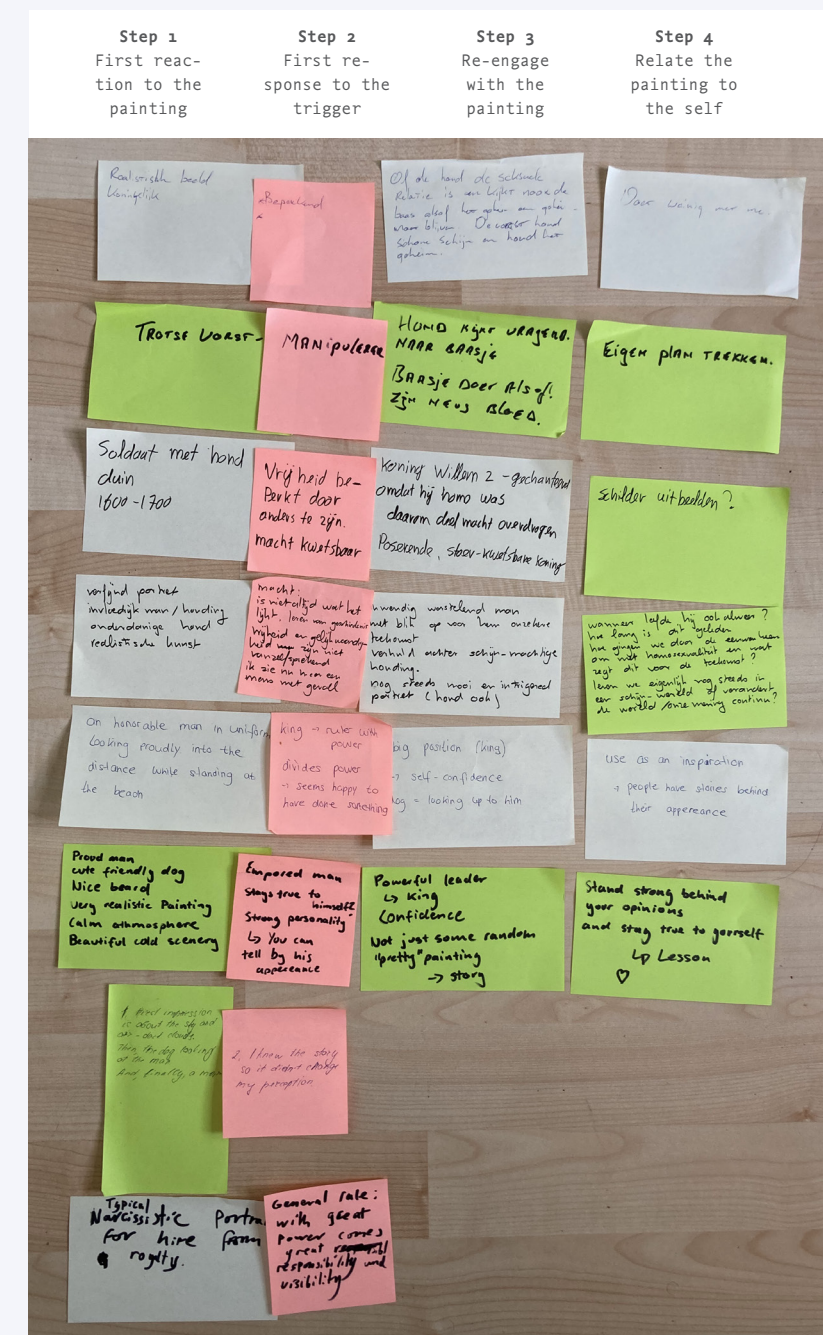 Step 1
First reac-
tion to the
painting
Step 2
First re-
sponse to the
trigger
Step 3
Re-engage
with the
painting
Step 4
Relate the
painting to
the self
Realistisch beeld
Koninklijk
Beperkend
Of de hond de
Relatie is en kijkt naar de
baas
blijven. De hond
schone schijn en houd het
geheim.
me.
TROTSE VORST
MANIPULEREN
HOND KIJKT VRAGEND.
NAAR BAASJE
BAASJE DOET ALSOF!
ZIJN NEUS BLOED.
EIGEN PLAN TREKKEN.
Soldaat met hond
duin
1600-1700
Vrijheid be-
perkt door
anders te zijn.
macht kwetsbaar
Koning Willem 2 - gechanteerd
omdat hij homo was
daarom deel macht overdragen
Poserende, stoer-kwetsbare koning
Schilder uitbeelden?
verfijnd portret
invloedrijk man/houding
onderdanige hond
realistische kunst
macht:
is niet altijd wat het
lijkt. leren van geschiedenis
vrijheid en gelijkwaardig-
heid zijn niet
vanzelfsprekend
ik zie nu een
mens met gevoel
inwendig worstelend man
met blik op voor hem onzekere
toekomst
verhuld achter schijn-machtige
houding.
nog steeds mooi en intrigerend
portret (hond ook)
wanneer leefde hij ook alweer?
hoe lang is dit geleden
hoe gingen we door de eeuwen heen
om met homosexualiteit en wat
zegt dit voor de toekomst?
leven we eigenlijk nog steeds in
een schijn-wereld of verandert
de wereld/onze mening continu?
an honorable man in uniform
looking proudly into the
distance while standing at
the beach
king → ruler with
power
divides power
→ seems happy to
have done something
big position (king)
→ self-confidence
dog = looking up to him
use as an inspiration
→ people have stories behind
their appereance
Proud man
cute friendly dog
Nice beard
very realistic Painting
Calm athmosphere
Beautiful cold scenery
Empored man
stays true to
himself?
Strong personality
↳ You can
tell by his
appereance
Powerful leader
↳ King
Confidence
Not just some random
"pretty" painting
→ story
Stand strong behind
your opinions
and stay true to yourself
↳ Lesson
♡
1 first impression
is about the sky and
clouds.
Then, the dog looking
at the man
And, finally, a man
2. I knew the story
so it didn't change
my perception
Typical
Narcissistic
for hire from
royalty.
General rule:
with great
power comes
great
responsibility and
visibility